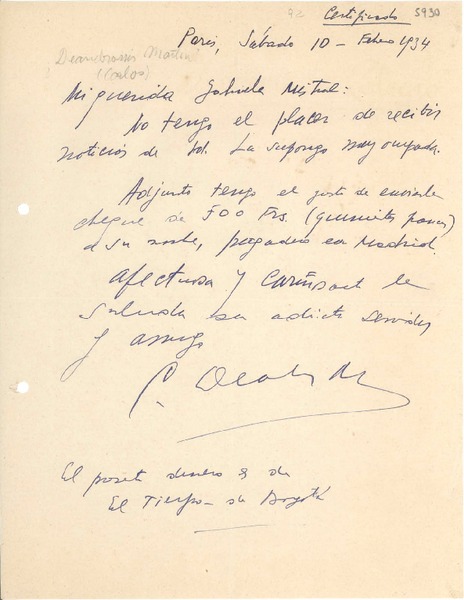 Certificado 5930
Paris, Sábado 10 - Febro 1934
Deambrosis Martins
(Carlos)
Mi querida Gabriela Mistral:
No tengo el placer de recibir
noticias de Ud. La supongo muy ocupada.
Adjunto tengo el gusto de enviarle
cheque de 500 Frs. (quinientos francos)
a su orden, pagadero en Madrid.
Afectuosa y cariñosamente le
saluda su adicto servidor
y amigo
C. Deambrosis
El presente dinero es de
El Tiempo - de Bogotá